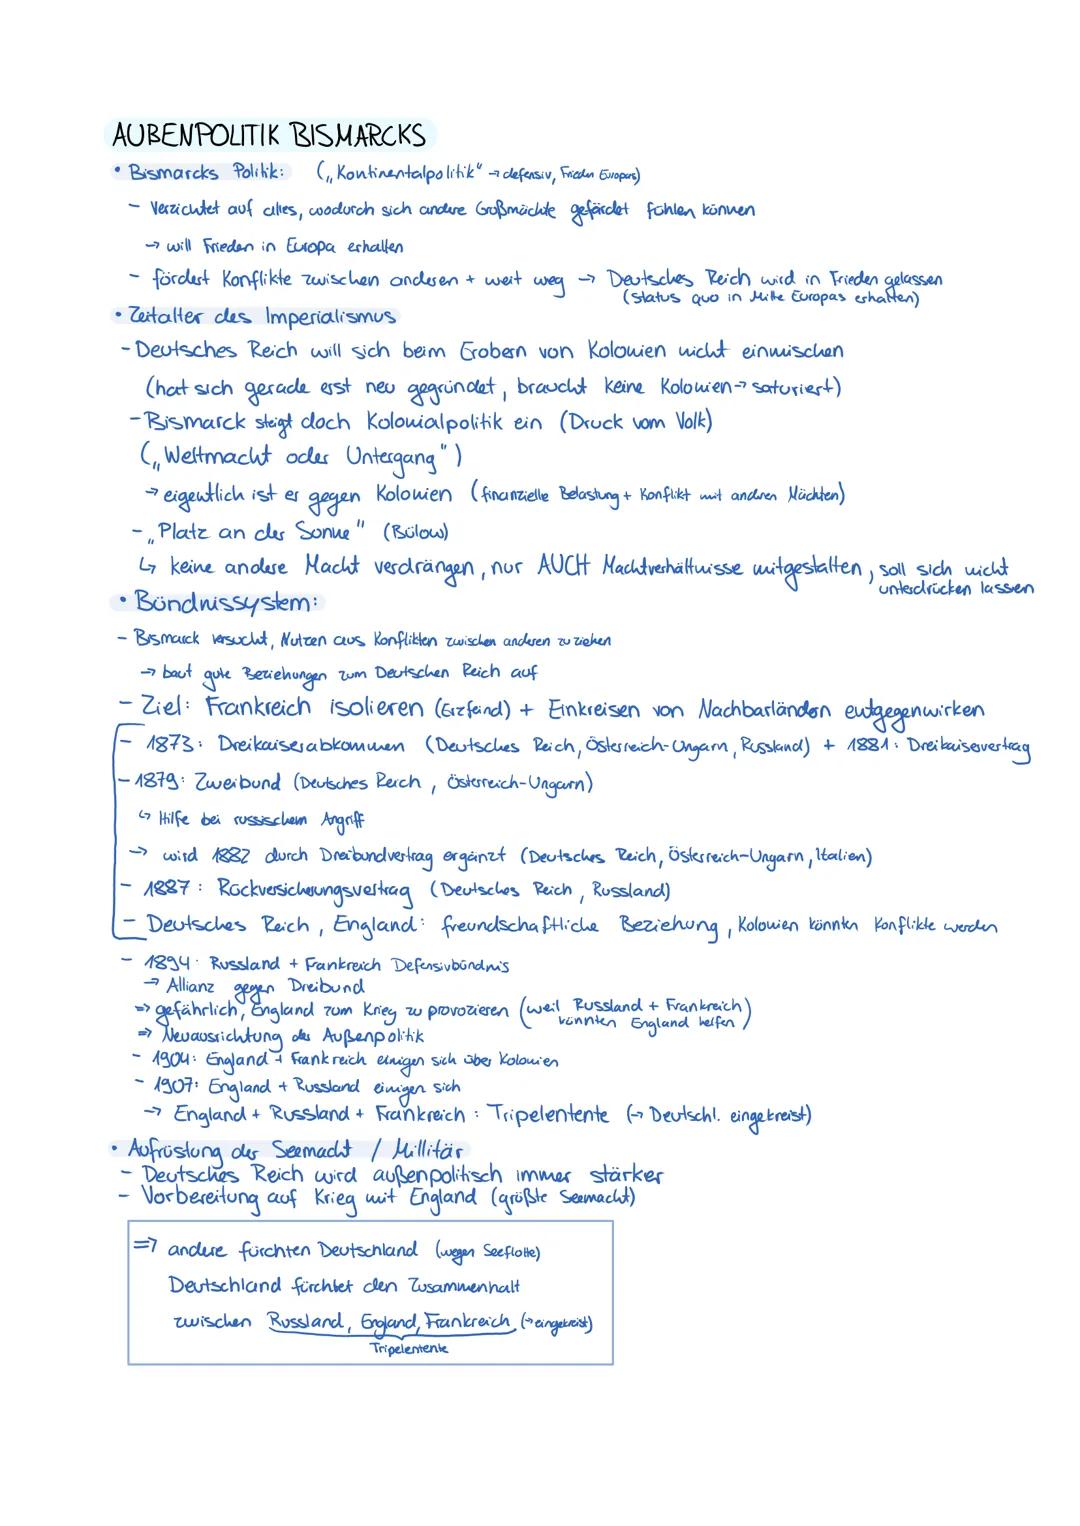 AUßENPOLITIK BISMARCKS
• Bismarcks Politik: („Kontinentalpolitik" → defensiv, Frieden Europas)
- Verzichtet auf alles, wodurch sich andere Großmächte gefärdet fühlen können
→ will Frieden in Europa erhalten
- fördert Konflikte zwischen anderen + weit weg → Deutsches Reich wird in Frieden gelassen
(status quo in Mitte Europas erhalten)
• Zeitalter des Imperialismus
- Deutsches Reich will sich beim Erobern von Kolonien nicht einmischen
(hat sich gerade erst neu gegründet, braucht keine Kolonien → saturiert)
- Bismarck steigt doch Kolonialpolitik ein (Druck vom Volk)
(„Weltmacht oder Untergang")
→ eigentlich ist er gegen Kolonien (finanzielle Belastung + Konflikt mit anderen Mächten)
- „Platz an der Sonne" (Bülow)
↳ keine andere Macht verdrängen, nur AUCH Machtverhältnisse mitgestalten, soll sich nicht
unterdrücken lassen
• Bündnissystem:
- Bismarck versucht, Nutzen aus Konflikten zwischen anderen zu ziehen
→ baut gute Beziehungen zum Deutschen Reich auf
- Ziel: Frankreich isolieren (Erzfeind) + Einkreisen von Nachbarländern entgegenwirken
- 1873: Dreikaiserabkommen (Deutsches Reich, Österreich-Ungarn, Russland) + 1881: Dreikaiservertrag
- 1879: Zweibund (Deutsches Reich, Österreich-Ungarn)
↳ Hilfe bei russischem Angriff
→ wird 1882 durch Dreibundvertrag ergänzt (Deutsches Reich, Österreich-Ungarn, Italien)
- 1887: Rückversicherungsvertrag (Deutsches Reich, Russland)
- Deutsches Reich, England: freundschaftliche Beziehung, Kolonien könnten Konflikte werden
- 1894: Russland + Fankreich Defensivbündnis
→ Allianz gegen Dreibund
⇒ gefährlich, England zum Krieg zu provozieren (weil Russland + Frankreich
könnten England helfen)
⇒ Neuausrichtung der Außenpolitik
- 1904: England + Frankreich einigen sich über Kolonien
- 1907: England + Russland einigen sich
→ England + Russland + Frankreich: Tripelentente (→ Deutschl. eingekreist)
• Aufrüstung der Seemacht / Millitär
- Deutsches Reich wird außenpolitisch immer stärker
- Vorbereitung auf Krieg mit England (größte Seemacht)
⇒ andere fürchten Deutschland (wegen Seeflotte)
Deutschland fürchtet den Zusammenhalt
zwischen Russland, England, Frankreich (→ eingekreist)
Tripelentente